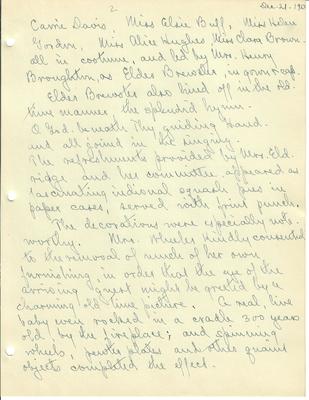 2
Dec-21-190
Carrie Davis Miss Elsie Buff, Miss Helen
Gordon, Miss Alice Hughes, Miss Clara Brown.
all in costume, and led by Mrs. Henry
Broughton, as Elder Brewster, in gown & cap.
Elder Brewster also lined off in the old
time manner the splendid hymn.
O God beneath Thy guiding hand.
and all joined in the singing.
The refreshments provided by Mrs. Eld
ridge and her committee appeared as
fascinating individual squash pies in
paper cases, served with fruit punch.
The decorations were especially note
worthy. Mrs. Wheeler kindly consented
to the removal of much of her own
furnishing, in order that the eye of the
arriving guest might be greeted by a
charming old time picture. A real live
baby was rocked in a cradle 300 years
old, by the fireplace; and spinning
wheels, pewter plates and other quaint
objects completed the effect.